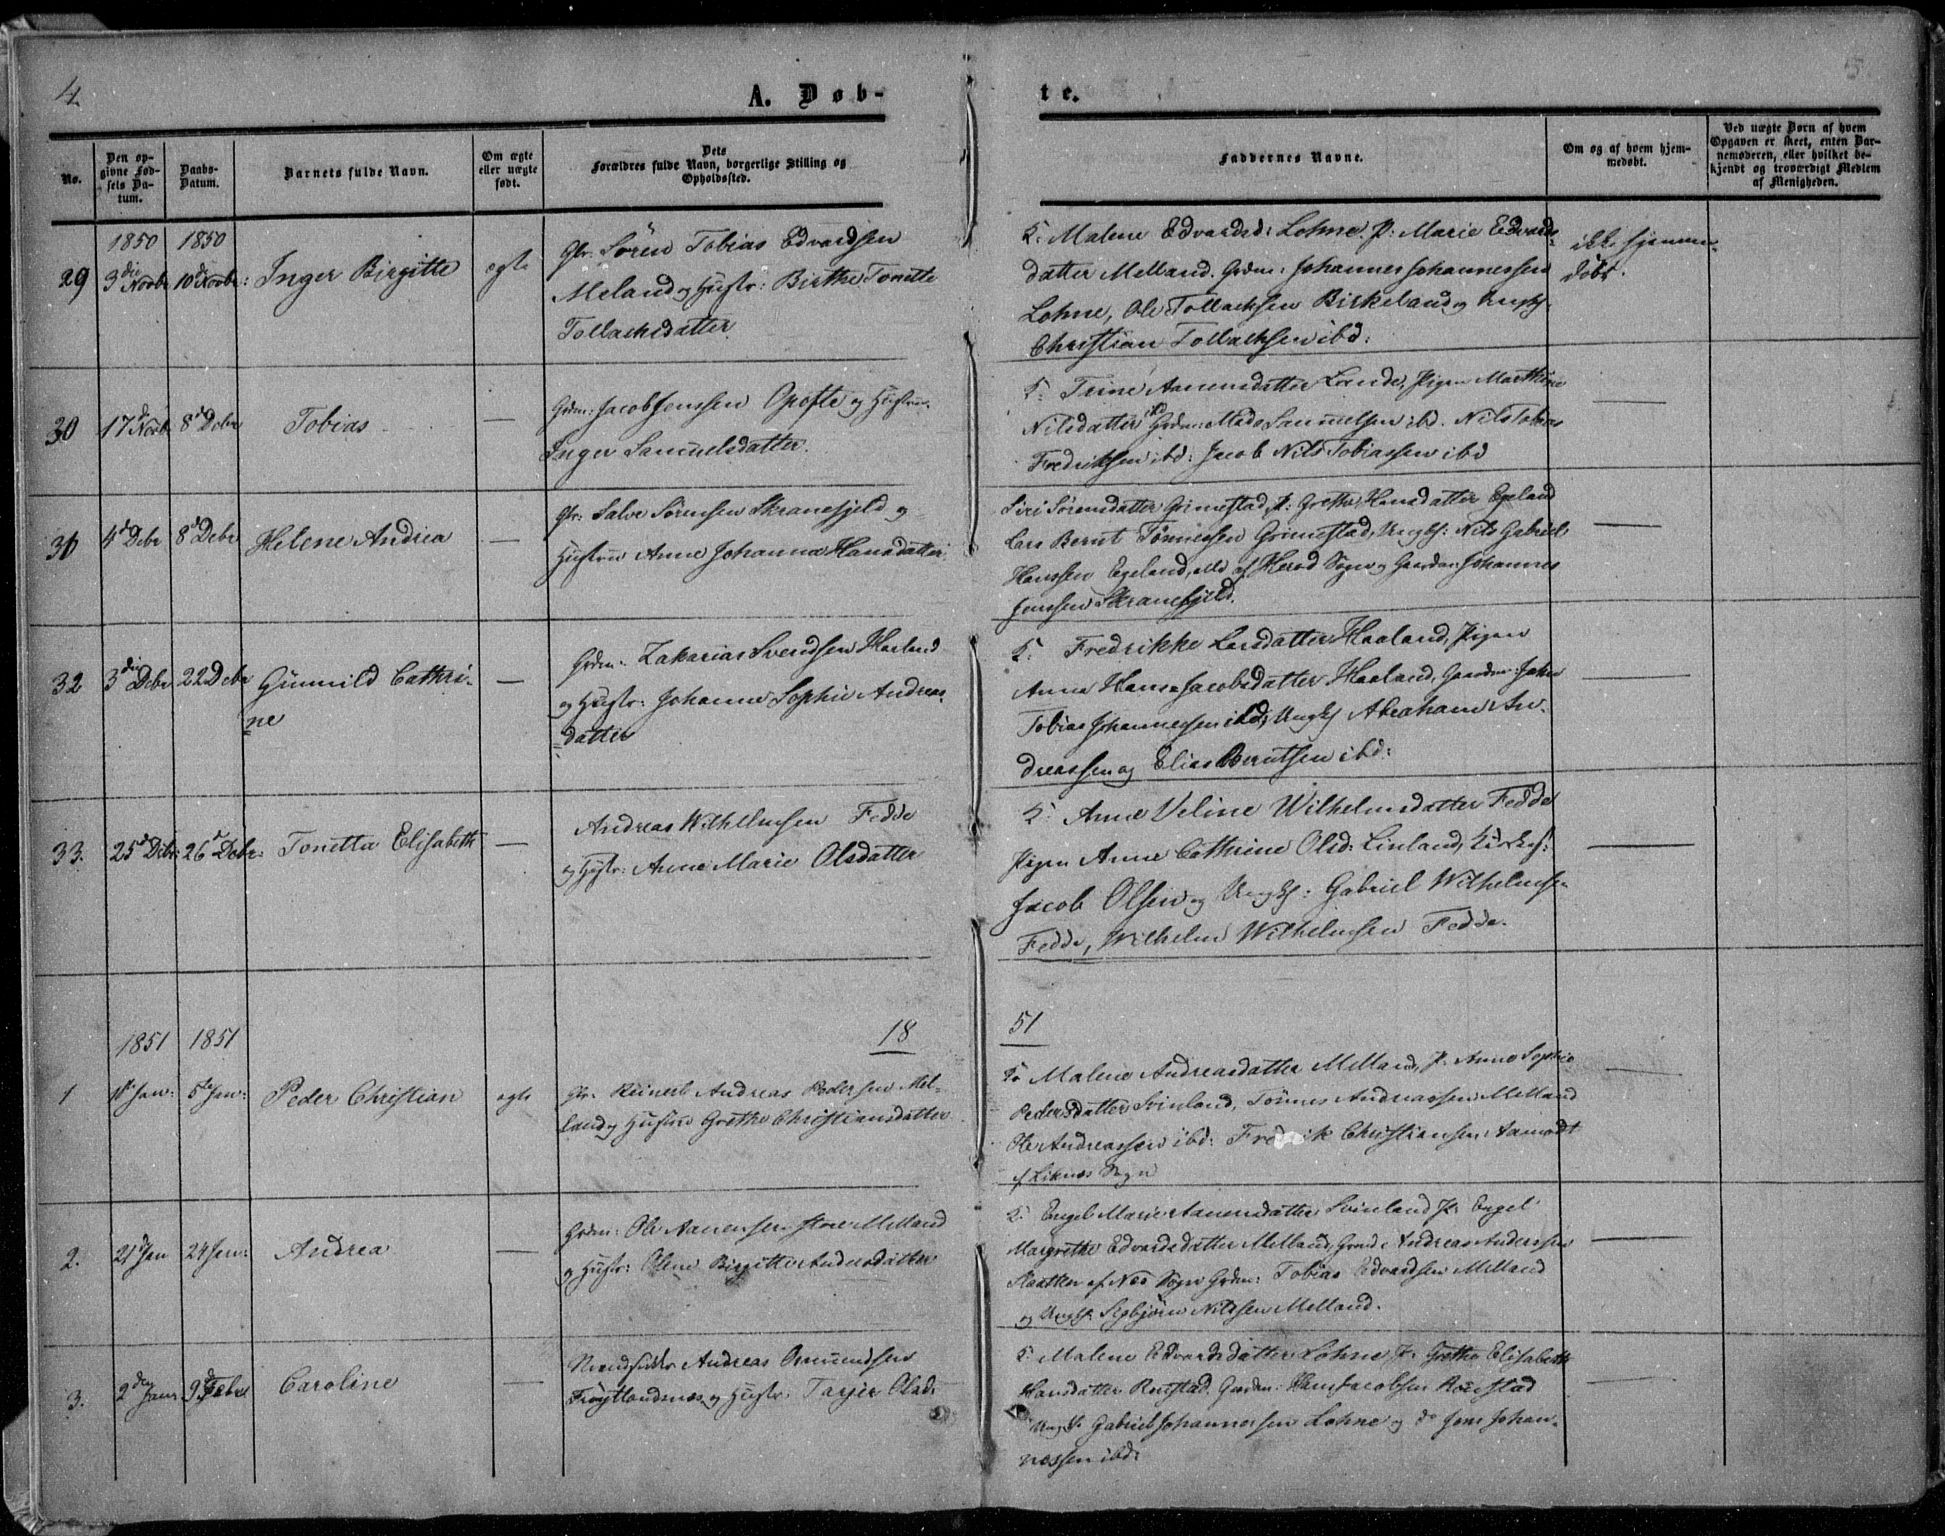 4
5
A. Døb-
te.
No.
Den op-
givne Fød-
sels Da-
tum.
Daabs-
Datum.
Barnets fulde Navn.
Om ægte
eller uægte
født.
Dets
Forældres fulde Navn, borgerlige Stilling og
Opholdssted.
Faddernes Navne.
Om og af hvem hjem-
medøbt.
Ved uægte Børn af hvem
Opgaven er skeet, enten Bar-
nemoderen, eller hvilket be-
kjendt og troværdigt Medlem
af Menigheden.
1850 1850
29 3die Novbr 10d Novbr: Inger Birgitte ægte
Gbr: Sören Tobias Edvardsen
Meland og Hustr: Birthe Tonette
Tollachsdatter
K: Malene Edvardsd: Lohne. P: Marie Edvards-
datter Melland. Grdm: Johannes Johannessen
Lohne, Ole Tollachsen Birkeland og
Christian Tollachsen ibd:
ikke hjemme-
döbt.
30 17d Novbr 8d Debr Tobias —
Grdm: Jacob Jenssen Opofte og Hustru
Inger Samuelsdatter.
K: Trine Aanensdatter Lande, Pigen Marthine
Nilsdatter ibd Grdm: Mads Samuelsen ibd. Nils Tobias
Fredriksen ibd: Jacob Nils Tobiassen ibd
—
31 4d Debr 8d Debr Helene Andrea —
Gbr: Salve Sörensen Skranefjeld og
Hustru Anne Johanna Hansdatter
Siri Sörensdatter Grimestad, P: Grethe Hansdatter Egeland
Lars Bernt Tönnessen Grimestad, Ungk: Nils Gabriel
Hanssen Egeland, alle af Herad Sogn og Gaardm: Johannes
Jenssen Skranefjeld.
—
32 3die Debr 22 Debr Gunnild Cathri-
ne
—
Grdm: Zakarias Svendsen Haaland
og Hustr: Johanne Sophie Andreas-
datter
K: Fredrikke Larsdatter Haaland, Pigen
Anne Hans Jacobsdatter Haaland, Gaardm: John
Tobias Johannessen ibd; Ungk Abraham An-
dreassen og Elias Berntsen ibd:
—
33. 25d Debr: 26d Debr: Tonetta Elisabeth —
Andreas Wilhelmsen Fedde
og Hustr: Anne Marie Olsdatter
K: Anne Veline Wilhelmsdatter Fedde
Pigen Anne Cathrine Olsd: Linland,
Jacob Olsen og Ungk: Gabriel Wilhelmsen
Fedde, Wilhelm Wilhelmsen Fedde.
—
18
51
1851 1851
1 Jan: 5te Jan: Peder Christian ægte
Gbr: Reinert Andreas Pedersen Mel-
land og Hustru Grethe Christiansdatter
K: Malene Andreasdatter Melland, P. Anne Sophie
Pedersdatter Svinland, Tönnes Andreassen Melland
Ole Andreassen ibd: Fredrik Christiansen Aamodt
af Liknes Sogn
—
2. 21d Jan 24 Jan: Andrea —
Grdm: Ole Aanensen store Melland
og Hustr: Olene Birgitte Andersdatter
K: Engel Marie Aanensdatter Svinland P: Engel
Margrethe Edvardsdatter Melland, Grdm: Andreas Anderssen
af Nes Sogn Grdm: Tobias Edvardsen Melland
og Ungk: Asbjörn Nilssen Melland.
—
3. 2den Janr 9d Febr Caroline
Andreas Osmundsen
Fröytlandsnes og Hustr: Tarjer Olsd:
K: Malene Edvardsdatter Lohne P: Grethe Elisabeth
Hansdatter Rørstad. Gardm: Hans Jacobsen Rørstad
Ungk: Gabriel Johannessen Lohne og do Jens Johan-
nessen ibd:
—